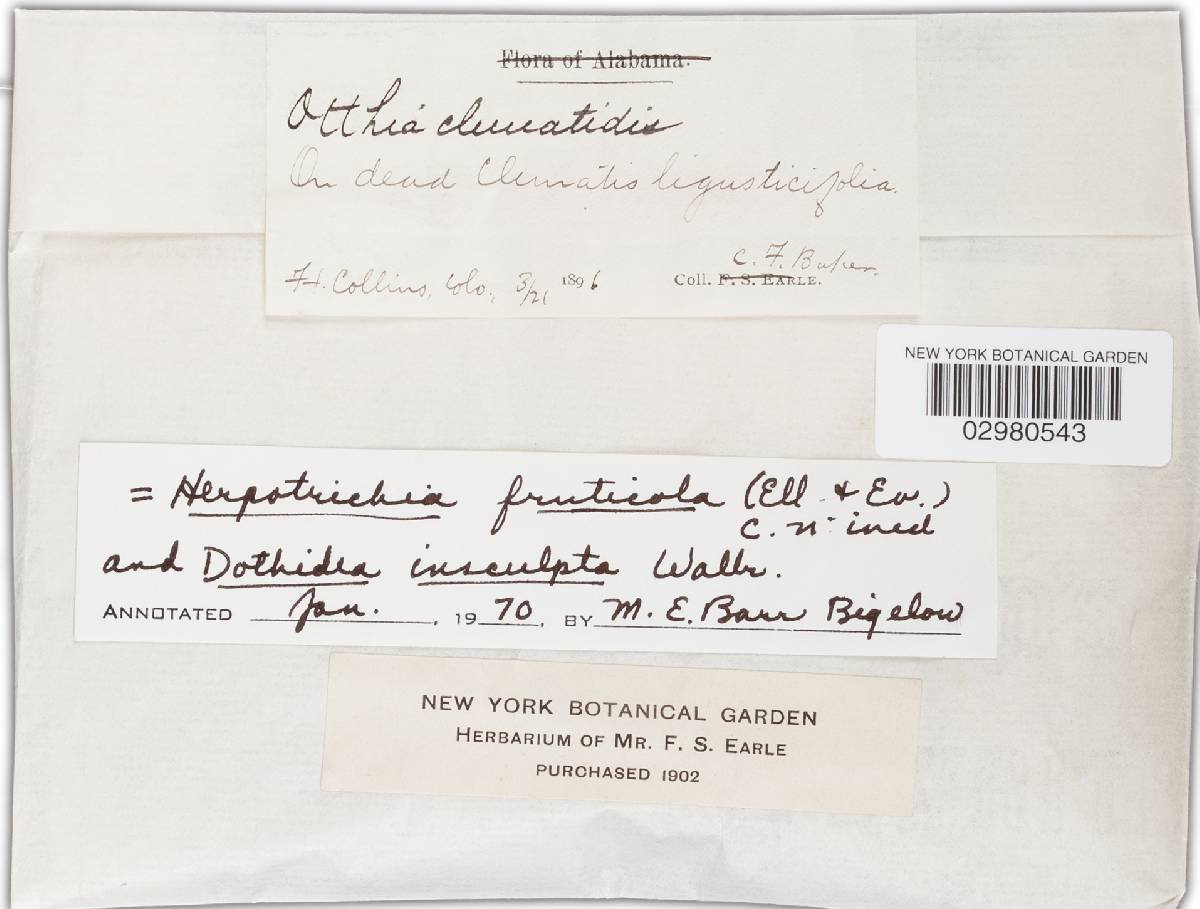 Flora of Alabama.
Otthia clematidis
On dead Clematis ligusticifolia.
C. F. Baker.
Ft. Collins, Colo., 3/21 1896 Coll. F. S. EARLE.
NEW YORK BOTANICAL GARDEN
02980543
= Herpotrichia fruticola (Ell. & Ev.)
C. N. ined
and Dothidea insculpta Wallr.
ANNOTATED Jan., 1970, BY M. E. Barr Bigelow
NEW YORK BOTANICAL GARDEN
HERBARIUM OF MR. F. S. EARLE
PURCHASED 1902